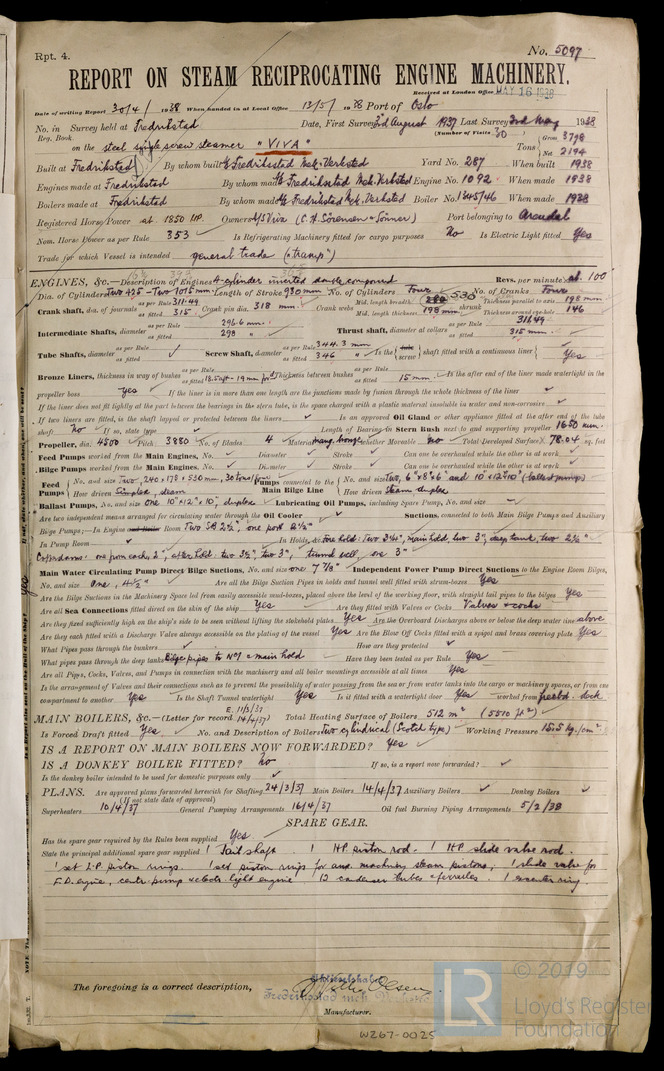 Rpt. 4.
No. 5097
REPORT ON STEAM RECIPROCATING ENGINE MACHINERY.
Received at London Office MAY 16 1938
Date of writing Report 30/4/ 1938 When handed in at Local Office 13/5/ 1938 Port of Oslo
No. in Survey held at Fredrikstad Date, First Survey 3rd August 1937 Last Survey 3rd May 1938
Reg. Book (Number of Visits 30)
on the steel single screw steamer "VIVA" Tons Gross 3798 Net 2194
Built at Fredrikstad By whom built A/S Fredriksstad Mek. Verksted Yard No. 287 When built 1938
Engines made at Fredrikstad By whom made A/S Fredriksstad Mek. Verksted Engine No. 1092 When made 1938
Boilers made at Fredrikstad By whom made A/S Fredriksstad Mek. Verksted Boiler No. 1345/46 When made 1938
Registered Horse Power at 1850 HP. Owners A/S Viva (C. H. Sörensen & Sönner) Port belonging to Arendal
Nom. Horse Power as per Rule 353 Is Refrigerating Machinery fitted for cargo purposes No Is Electric Light fitted Yes
Trade for which Vessel is intended general trade ("tramp")
ENGINES, &c.—Description of Engines 4-cylinder inverted double compound Revs. per minute ab. 100
Dia. of Cylinders Two 425 - Two 1015 mm. Length of Stroke 930 mm No. of Cylinders Four No. of Cranks Four
Crank shaft, dia. of journals as per Rule 311.49 as fitted 315 Crank pin dia. 318 mm. Crank webs Mid. length breadth 530 Mid. length thickness 198 mm shrunk Thickness parallel to axis 198 mm Thickness around eye-hole 146
Intermediate Shafts, diameter as per Rule 296.6 mm as fitted 298 " Thrust shaft, diameter at collars as per Rule 311.49 as fitted 315 mm.
Tube Shafts, diameter as per Rule as fitted Screw Shaft, diameter as per Rule 344.3 mm as fitted 346 " Is the tube screw shaft fitted with a continuous liner Yes
Bronze Liners, thickness in way of bushes as per Rule as fitted 18.5 aft - 19 mm for'd Thickness between bushes as per Rule as fitted 15 mm. Is the after end of the liner made watertight in the
propeller boss yes If the liner is in more than one length are the junctions made by fusion through the whole thickness of the liner
If the liner does not fit tightly at the part between the bearings in the stern tube, is the space charged with a plastic material insoluble in water and non-corrosive
If two liners are fitted, is the shaft lapped or protected between the liners Is an approved Oil Gland or other appliance fitted at the after end of the tube
shaft No If so, state type Length of Bearing in Stern Bush next to and supporting propeller 1650 mm.
Propeller, dia. 4500 Pitch 3880 No. of Blades 4 Material mang. bronze whether Moveable No Total Developed Surface 78.04 sq. feet
Feed Pumps worked from the Main Engines, No. Diameter Stroke Can one be overhauled while the other is at work
Bilge Pumps worked from the Main Engines, No. Diameter Stroke Can one be overhauled while the other is at work
Feed Pumps No. and size Two, 240 x 178 x 530 mm, 30 tons/hour How driven Simplex, steam Pumps connected to the Main Bilge Line No. and size Two, 6"x8"x6" and 10"x12"x10" (ballast pumps) How driven Steam duplex
Ballast Pumps, No. and size One 10"x12"x10", duplex Lubricating Oil Pumps, including Spare Pump, No. and size
Are two independent means arranged for circulating water through the Oil Cooler Suctions, connected to both Main Bilge Pumps and Auxiliary
Bilge Pumps;—In Engine Room Two SB 2½", one port 2½"
In Pump Room In Holds, &c. Fore hold: Two 3½", main hold, two 3", deep tank, two 2½"
Cofferdams: one from each, 2", after hold: two 3½", two 3", tunnel well, one 3"
Main Water Circulating Pump Direct Bilge Suctions, No. and size one 7⅞" Independent Power Pump Direct Suctions to the Engine Room Bilges,
No. and size One, 4½" Are all the Bilge Suction Pipes in holds and tunnel well fitted with strum-boxes Yes
Are the Bilge Suctions in the Machinery Space led from easily accessible mud-boxes, placed above the level of the working floor, with straight tail pipes to the bilges Yes
Are all Sea Connections fitted direct on the skin of the ship Yes Are they fitted with Valves or Cocks Valves & cocks
Are they fixed sufficiently high on the ship's side to be seen without lifting the stokehold plates Yes Are the Overboard Discharges above or below the deep water line above
Are they each fitted with a Discharge Valve always accessible on the plating of the vessel Yes Are the Blow Off Cocks fitted with a spigot and brass covering plate Yes
What Pipes pass through the bunkers How are they protected
What pipes pass through the deep tanks Bilge pipes to No 1 & main hold Have they been tested as per Rule Yes
Are all Pipes, Cocks, Valves, and Pumps in connection with the machinery and all boiler mountings accessible at all times Yes
Is the arrangement of Valves and their connections such as to prevent the possibility of water passing from the sea or from water tanks into the cargo or machinery spaces, or from one
compartment to another Yes Is the Shaft Tunnel watertight Yes Is it fitted with a watertight door Yes worked from freeb. deck
MAIN BOILERS, &c.—(Letter for record E. 11/3/37 14/4/37) Total Heating Surface of Boilers 512 m² (5510 ft²)
Is Forced Draft fitted Yes No. and Description of Boilers Two cylindrical (Scotch type) Working Pressure 15.5 kg./cm²
IS A REPORT ON MAIN BOILERS NOW FORWARDED? Yes
IS A DONKEY BOILER FITTED? No If so, is a report now forwarded?
Is the donkey boiler intended to be used for domestic purposes only
PLANS. Are approved plans forwarded herewith for Shafting 24/3/37 Main Boilers 14/4/37 Auxiliary Boilers Donkey Boilers
(If not state date of approval)
Superheaters 10/4/37 General Pumping Arrangements 16/4/37 Oil fuel Burning Piping Arrangements 5/2/38
SPARE GEAR.
Has the spare gear required by the Rules been supplied Yes
State the principal additional spare gear supplied 1 Tail shaft 1 HP piston rod. 1 HP slide valve rod.
1 set L.P piston rings. 1 set piston rings for aux. machinery steam pistons, 1 slide valve for
F.D. engine, centr. pump & electr light engine 12 condenser tubes & ferrules. 1 excenter ring.
The foregoing is a correct description,
Aktieselskabet
Fredriksstad mek.
Manufacturer.
W267-0025
LR
© 2019
Lloyd's Register
Foundation